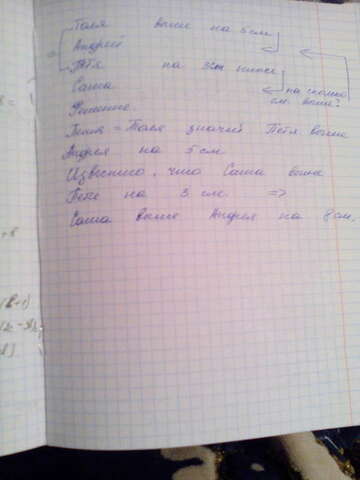 Толя выше на 5 см
Андрей
Петя на 3 см ниже
Саша на сколько
см. выше?
Решение
Петя = Толя значит Петя выше
Андрея на 5 см
Известно, что Саша выше
Пети на 3 см. =>
Саша выше Андрея на 8 см.